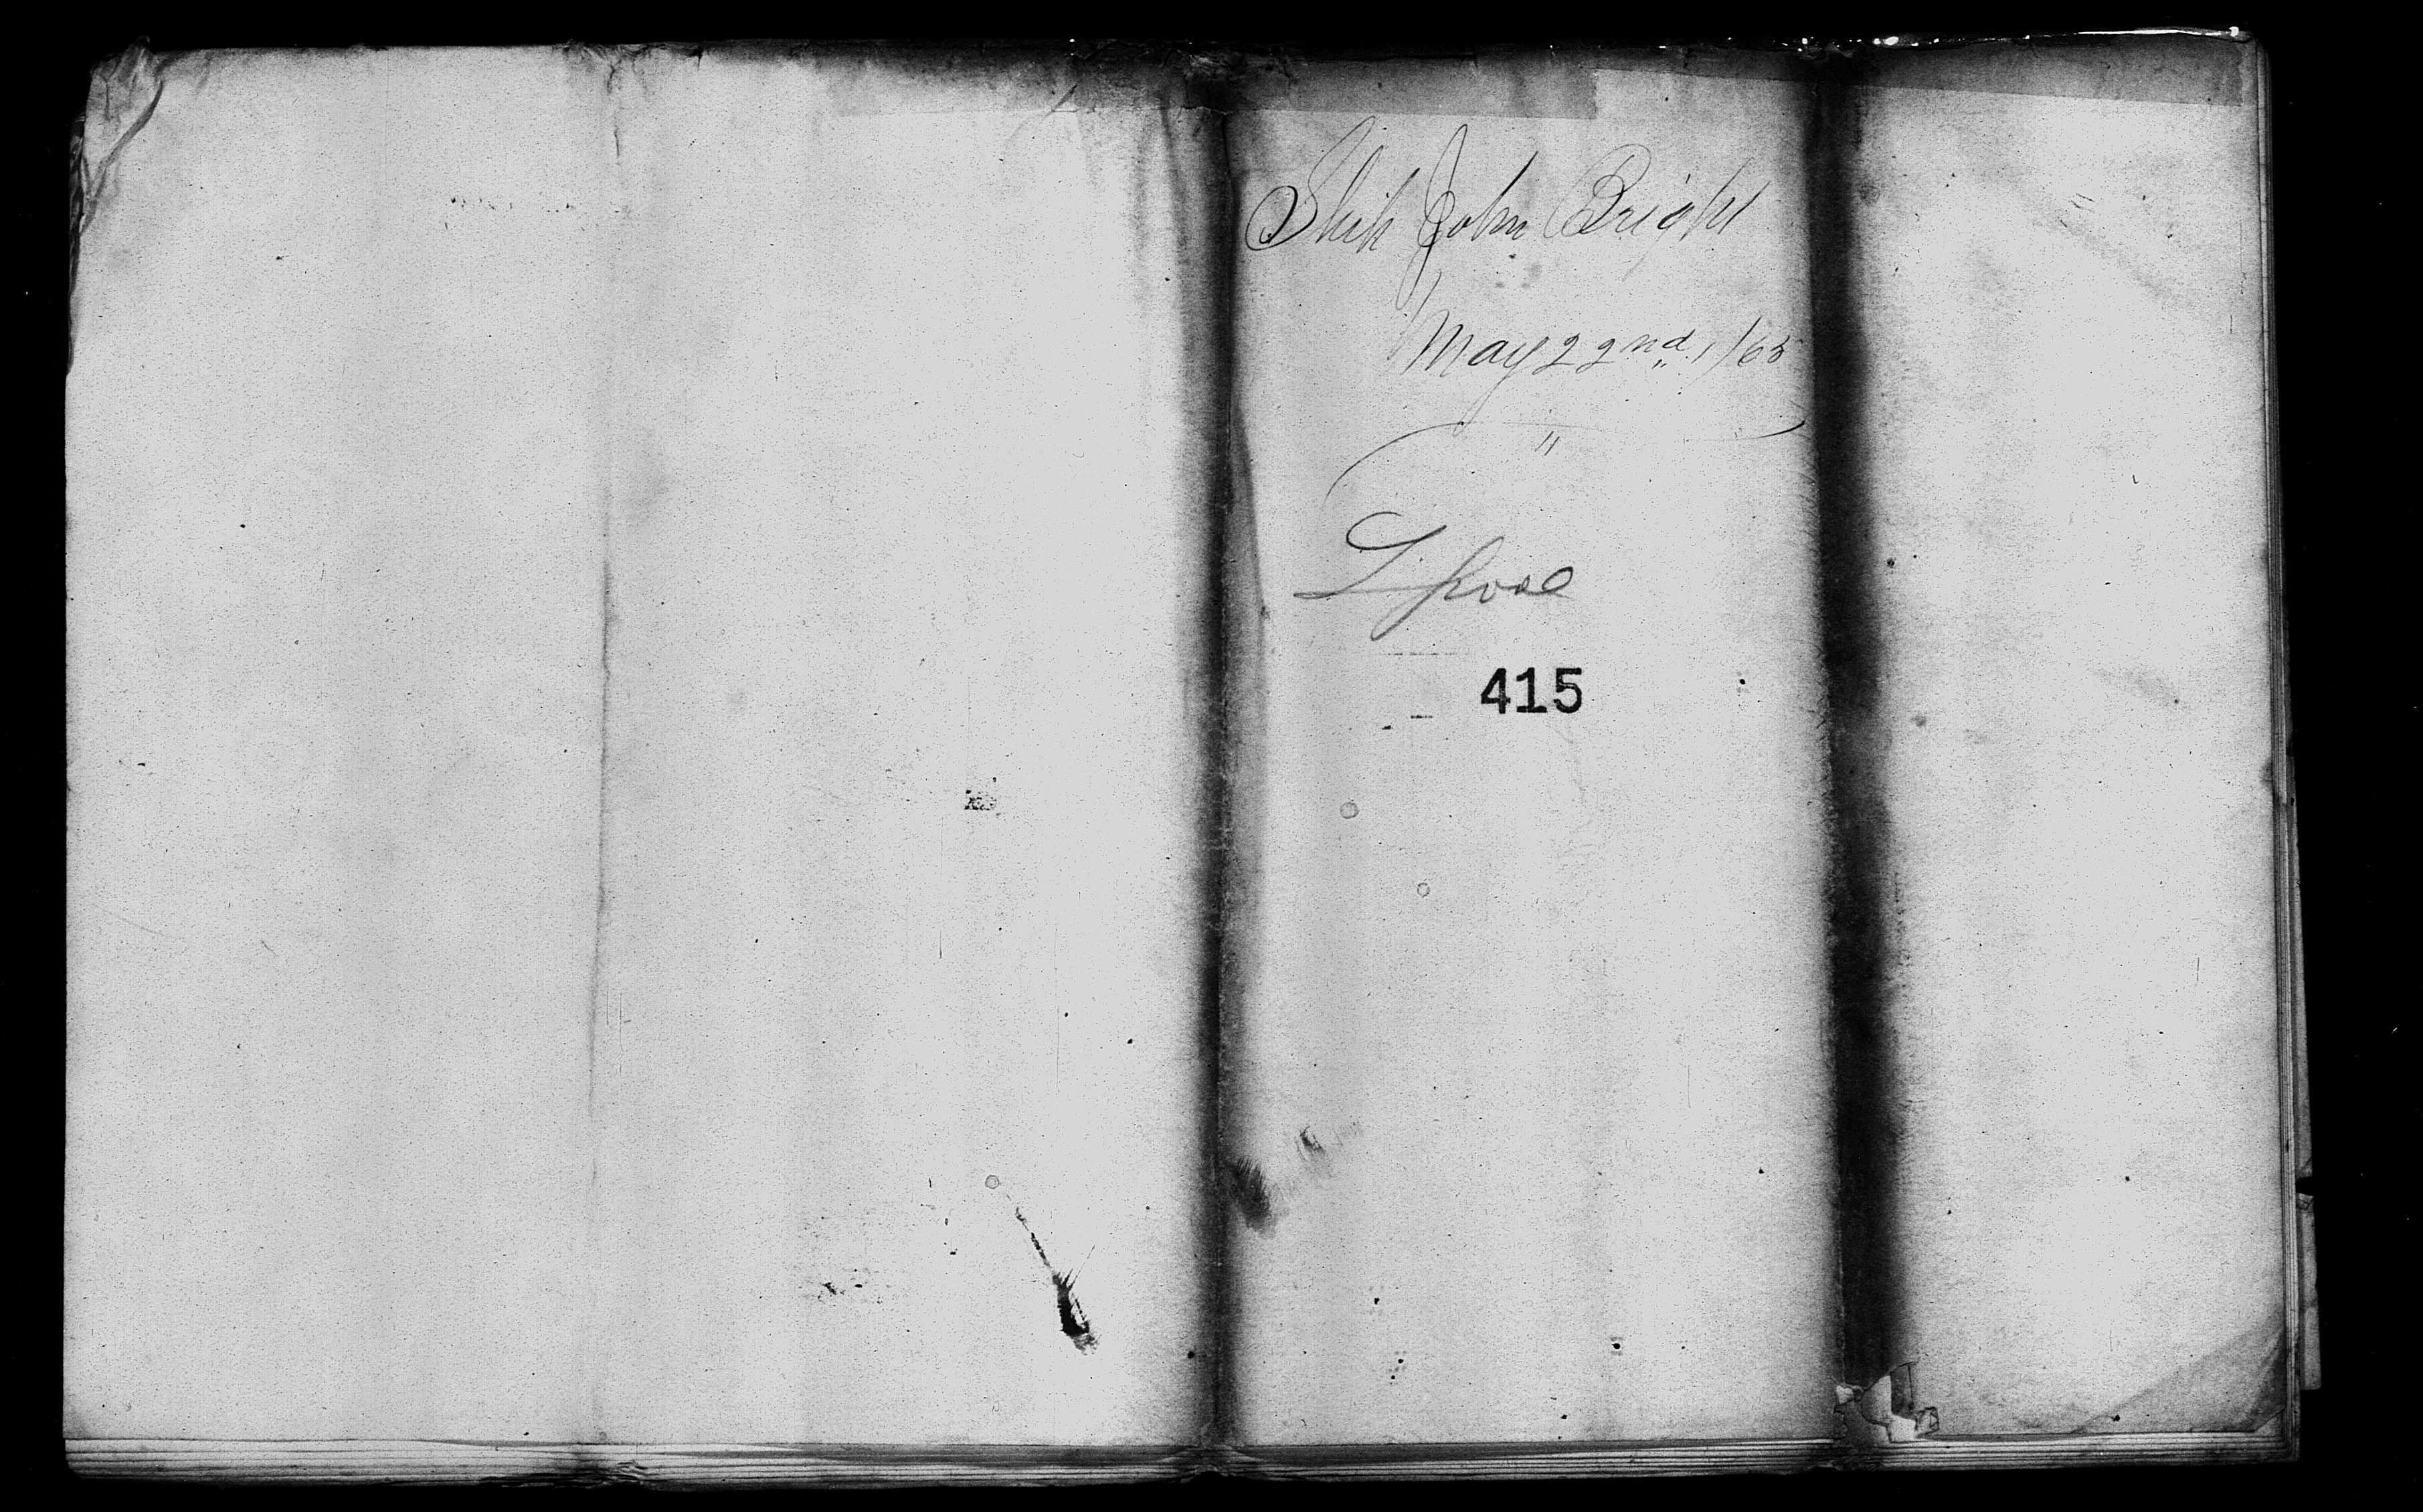 Ship John Bright
May 22nd /65
"
L'pool
415